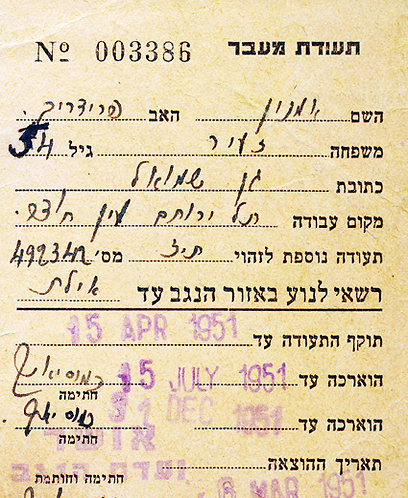 תעודת מעבר
№ 003386
השם אמנון האב פרידריך
משפחה זעיר גיל 54
כתובת גן שמואל
מקום עבודה תל ירוחם עין חוצב
תעודה נוספת לזהוי ת״ז מס׳ 492342
רשאי לנוע באזור הנגב עד אילת
תוקף התעודה עד 15 APR 1951
הוארכה עד 15 JULY 1951
חתימה
הוארכה עד 31 DEC 1951
חתימה
תאריך ההוצאה 6 MAR 1951
חתימה וחותמת